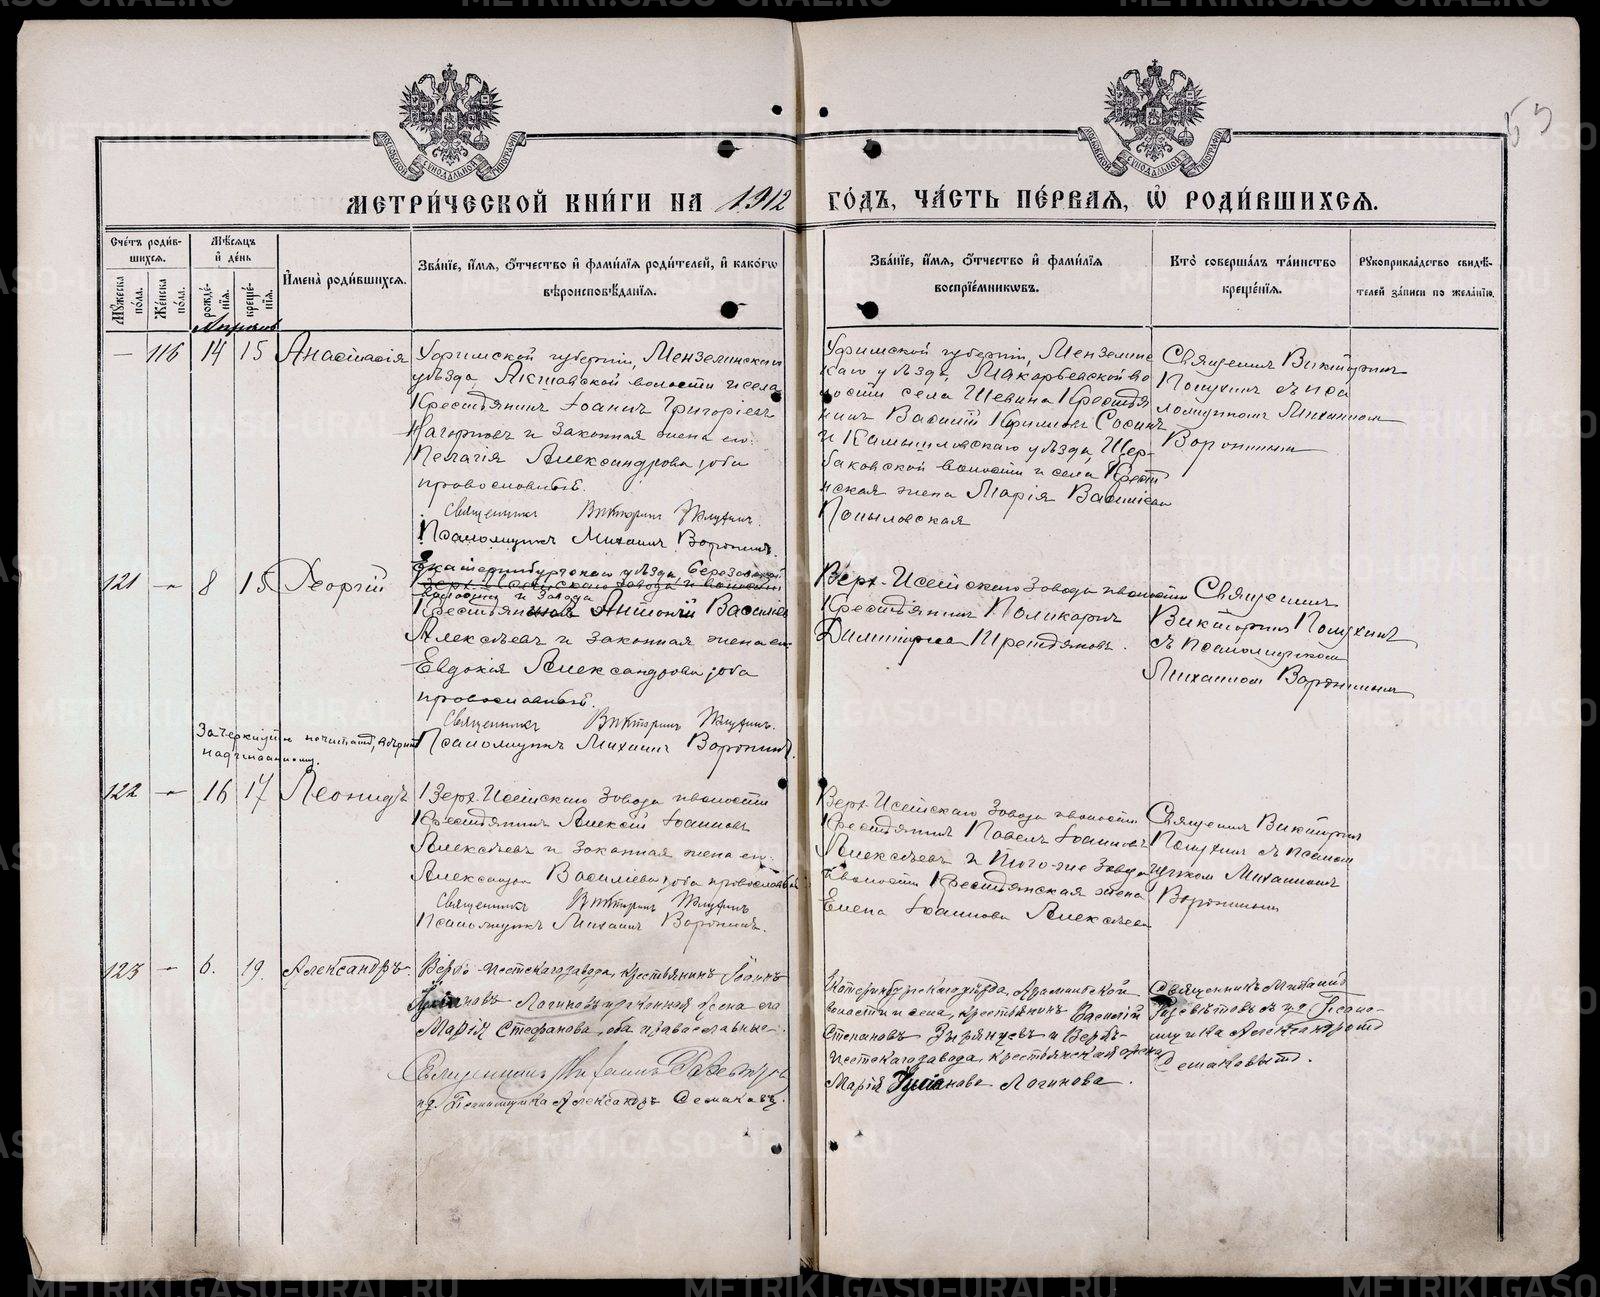 МЕТРИ́ЧЕСКОЙ КНИ́ГИ НА 1912 ГО́ДЪ, ЧА́СТЬ ПЕ́РВАЯ, Ѡ РОДИ́ВШИХСЯ.
Сче́тъ роди́в-
шихся.
Му́жеска по́ла.
Же́нска по́ла.
Мѣ́сяцъ
и҆ де́нь
рожде́-
нїя.
креще́-
нїя.
И҆мена̀ роди́вшихся.
Зва́нїе, и҆́мя, ѻ҆́тчество и҆ фами́лїя роди́телей, и҆ како́гѡ
вѣроисповѣ́данїя.
Зва́нїе, и҆́мя, ѻ҆́тчество и҆ фами́лїя
воспрїе́мникѡвъ.
Кто̀ соверша́лъ та́инство
креще́нїя.
Рꙋкоприкла́дство свидѣ́-
телей за́писи по жела́нїю.
— 116 14 15 Анастасія
Уфимской губерніи, Мензелинскаго
уѣзда, волости и села
Крестьянинъ Іоаннъ Григоріевъ
и законная жена его
Пелагія Александрова, оба
православные.
Священникъ Викторинъ
Псаломщикъ Михаилъ Воронинъ.
Уфимской губерніи, Мензелинс
каго уѣзда, Макарьевской во
лости села Шевина Крестья
нинъ Василій Ефимовъ
и Камышловскаго уѣзда, Щер-
баковской волости и села Кресть
нская жена Марія Василіева
Священникъ Викторинъ
съ пса
ломщикомъ Михаиломъ
Воронинымъ
121 — 8 15 Георгій
Екатеринбургскаго уѣзда, Березовской
Верх-Исетскаго завода и волости
волости и завода
Крестьянинъ Антоній Василіев
Алексѣевъ и законная жена его
Евдокія Александрова, оба
православные.
Священникъ Викторинъ
Псаломщикъ Михаилъ Воронинъ.
Верх-Исетскаго завода и волости
Крестьянинъ Поликарпъ
Димитріевъ Третьяковъ.
Священникъ
Викторинъ
съ псаломщикомъ
Михаиломъ Воронинымъ
Зачеркнутое не читать, вѣрить
надписанному.
122 — 16 17 Леонидъ
Верх-Исетскаго завода и волости
Крестьянинъ Алексій Іоанновъ
Алексѣевъ и законная жена его
Александра Василіева, оба православные
Священникъ Викторинъ
Псаломщикъ Михаилъ Воронинъ.
Верх-Исетскаго завода и волости
Крестьянинъ Павелъ Іоанновъ
Алексѣевъ и того-же завода
и волости Крестьянская жена
Елена Іоаннова Алексѣева
Священникъ Викторинъ
съ псалом
щикомъ Михаиломъ
Воронинымъ
123 — 6. 19. Александръ.
Верхъ-Исетскаго завода, крестьянинъ Іоаннъ
Логиновъ и законная жена его
Марія Стефанова, оба православные.
Священникъ
и. д. Псаломщика Александръ Семаковъ.
Екатеринбургскаго уѣзда, Арамильской
волости и села, крестьянинъ Василій
Степановъ Зырянцевъ и Верхъ-
Исетскаго завода, крестьянская жена
Марія Логинова.
Священникъ
съ и. д. Псалом-
щика Александромъ
Семаковымъ.
METRIKI.GASO-URAL.RU